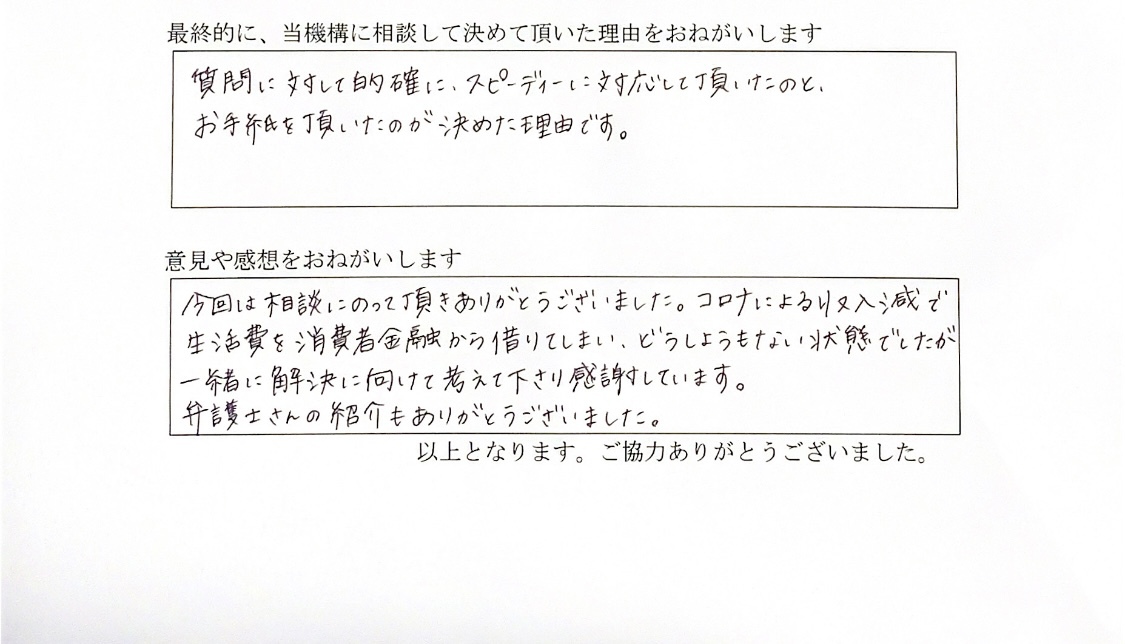 最終的に、当機構に相談して決めて頂いた理由をおねがいします
質問に対して的確に、スピーディーに対応して頂いたのと、
お手紙を頂いたのが決めた理由です。
意見や感想をおねがいします
今回は相談にのって頂きありがとうございました。コロナによる収入減で
生活費を消費者金融から借りてしまい、どうしようもない状態でしたが
一緒に解決に向けて考えて下さり感謝しています。
弁護士さんの紹介もありがとうございました。
以上となります。ご協力ありがとうございました。